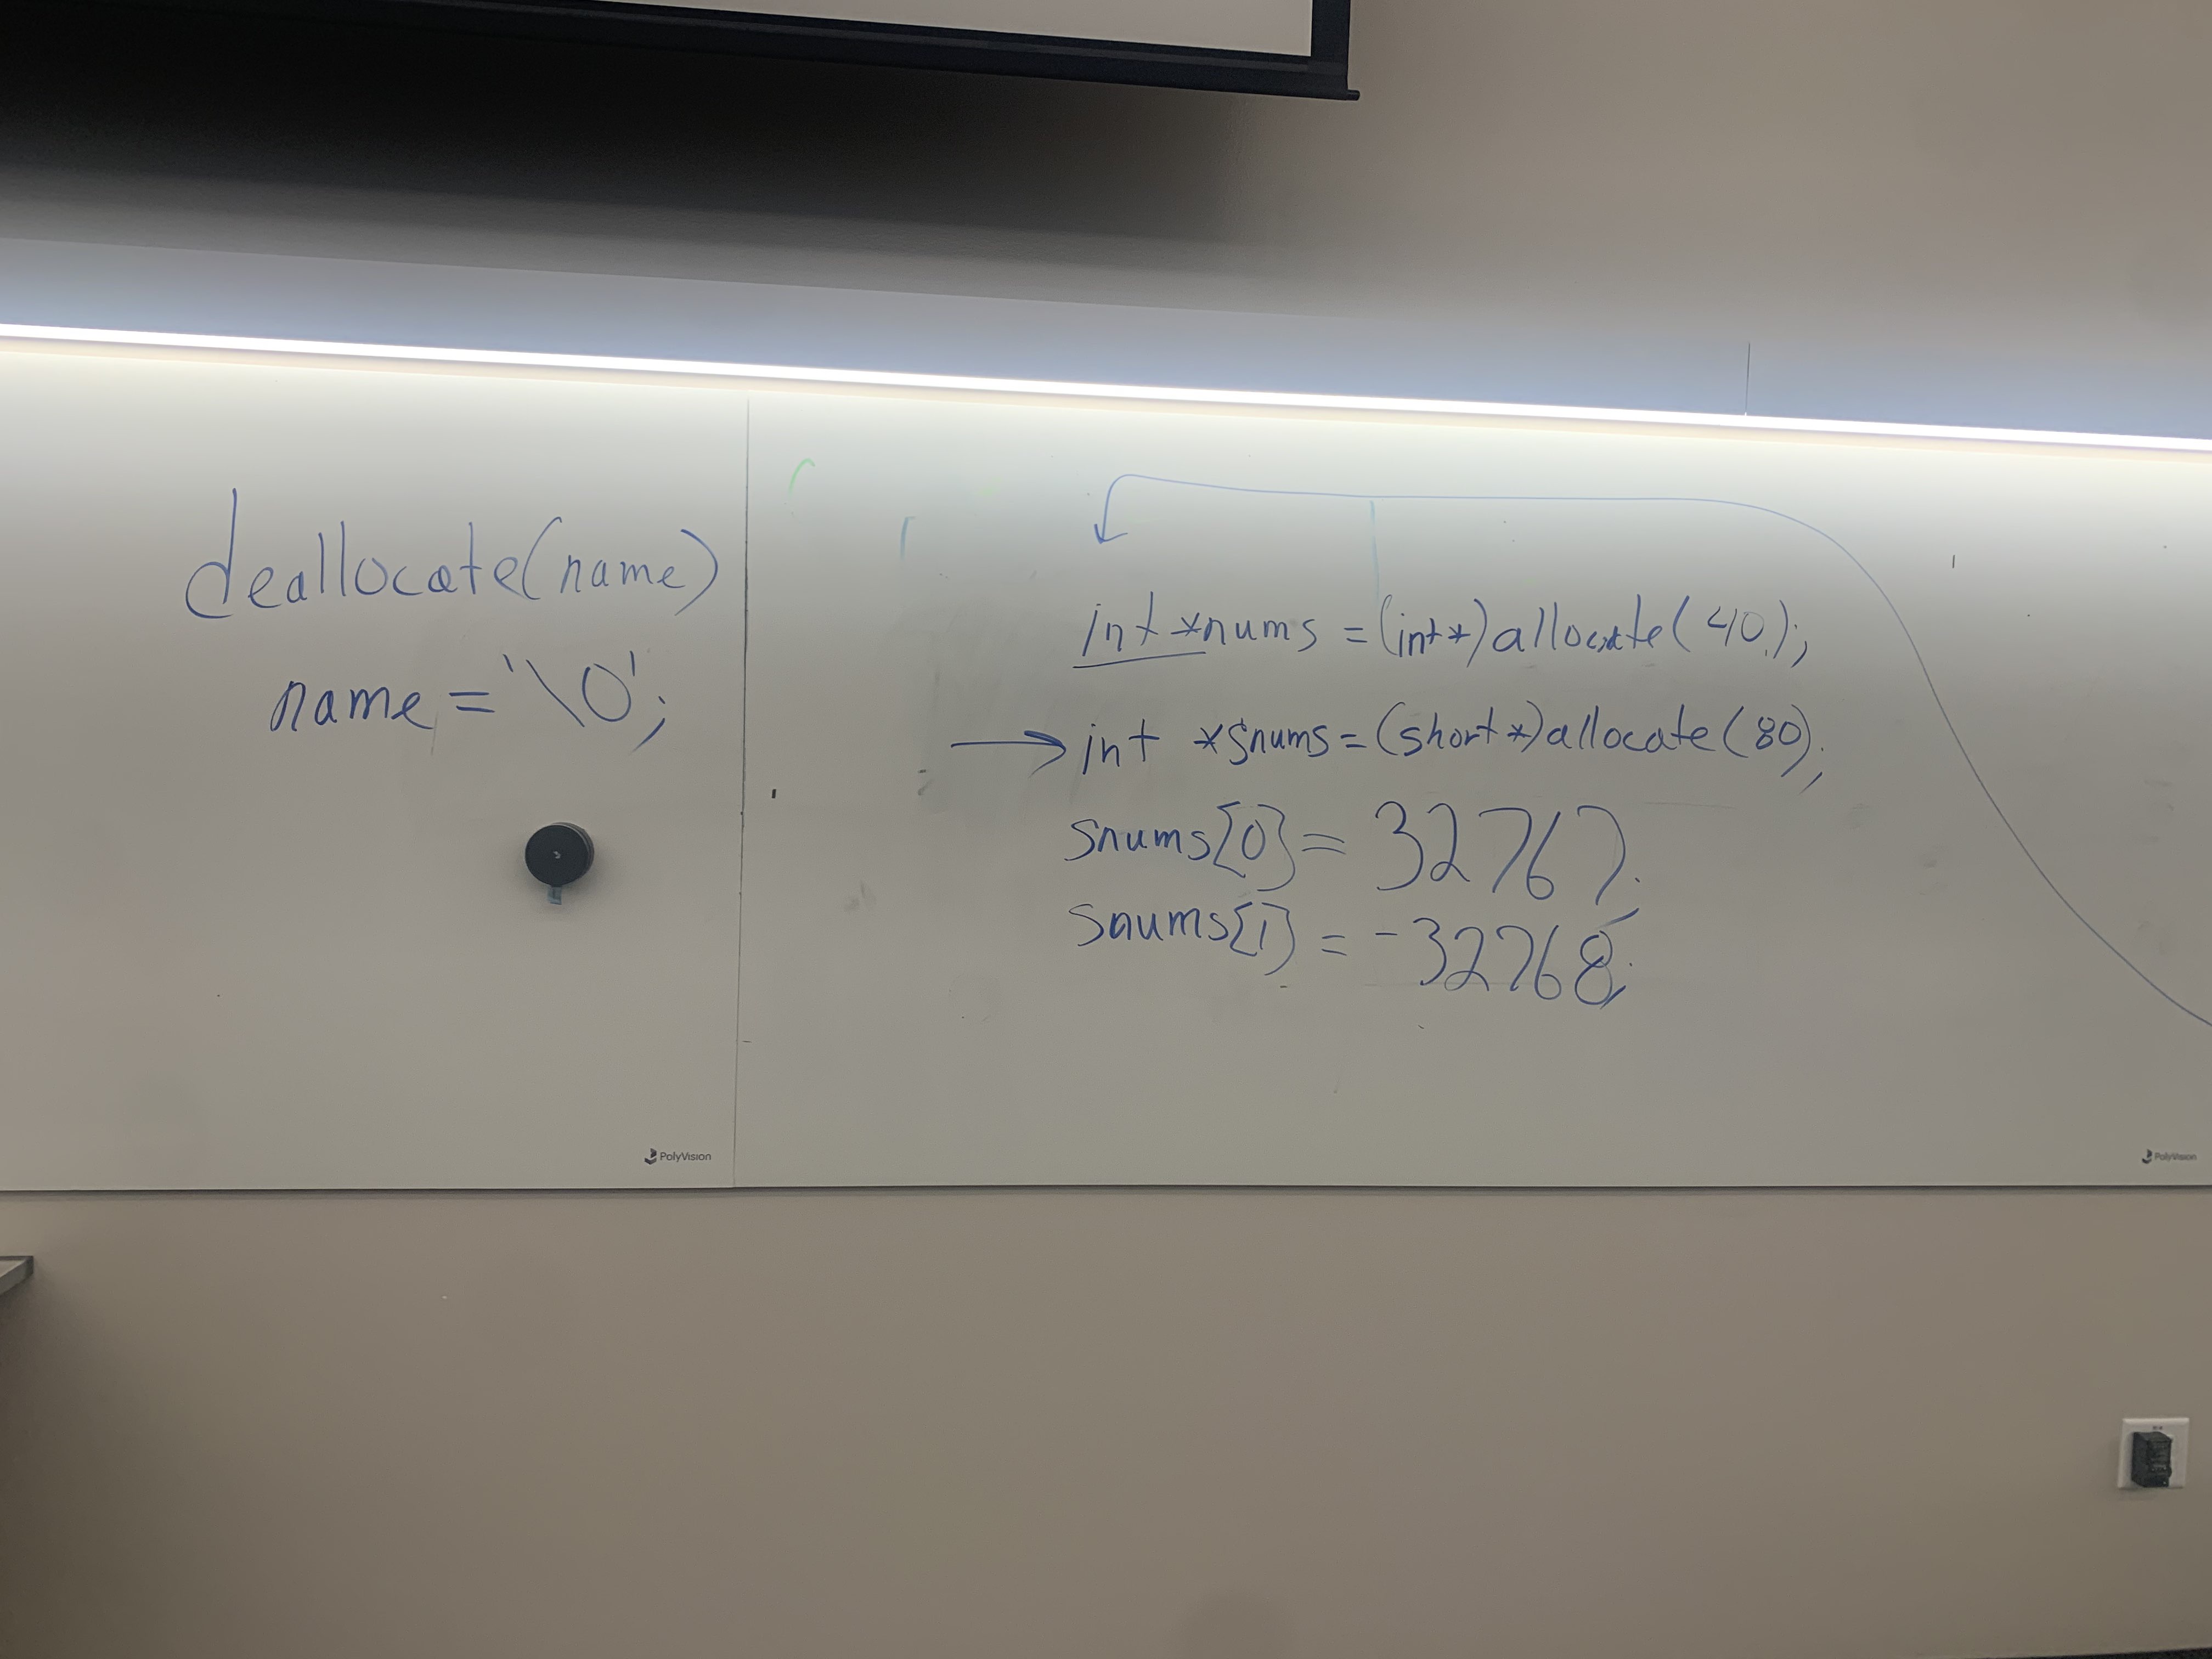 deallocate(name)
name = '\0';
int *nums = (int*)allocate(40);
int *snums = (short*)allocate(80);
snums[0] = 32767;
snums[1] = -32768;
PolyVision
PolyVision